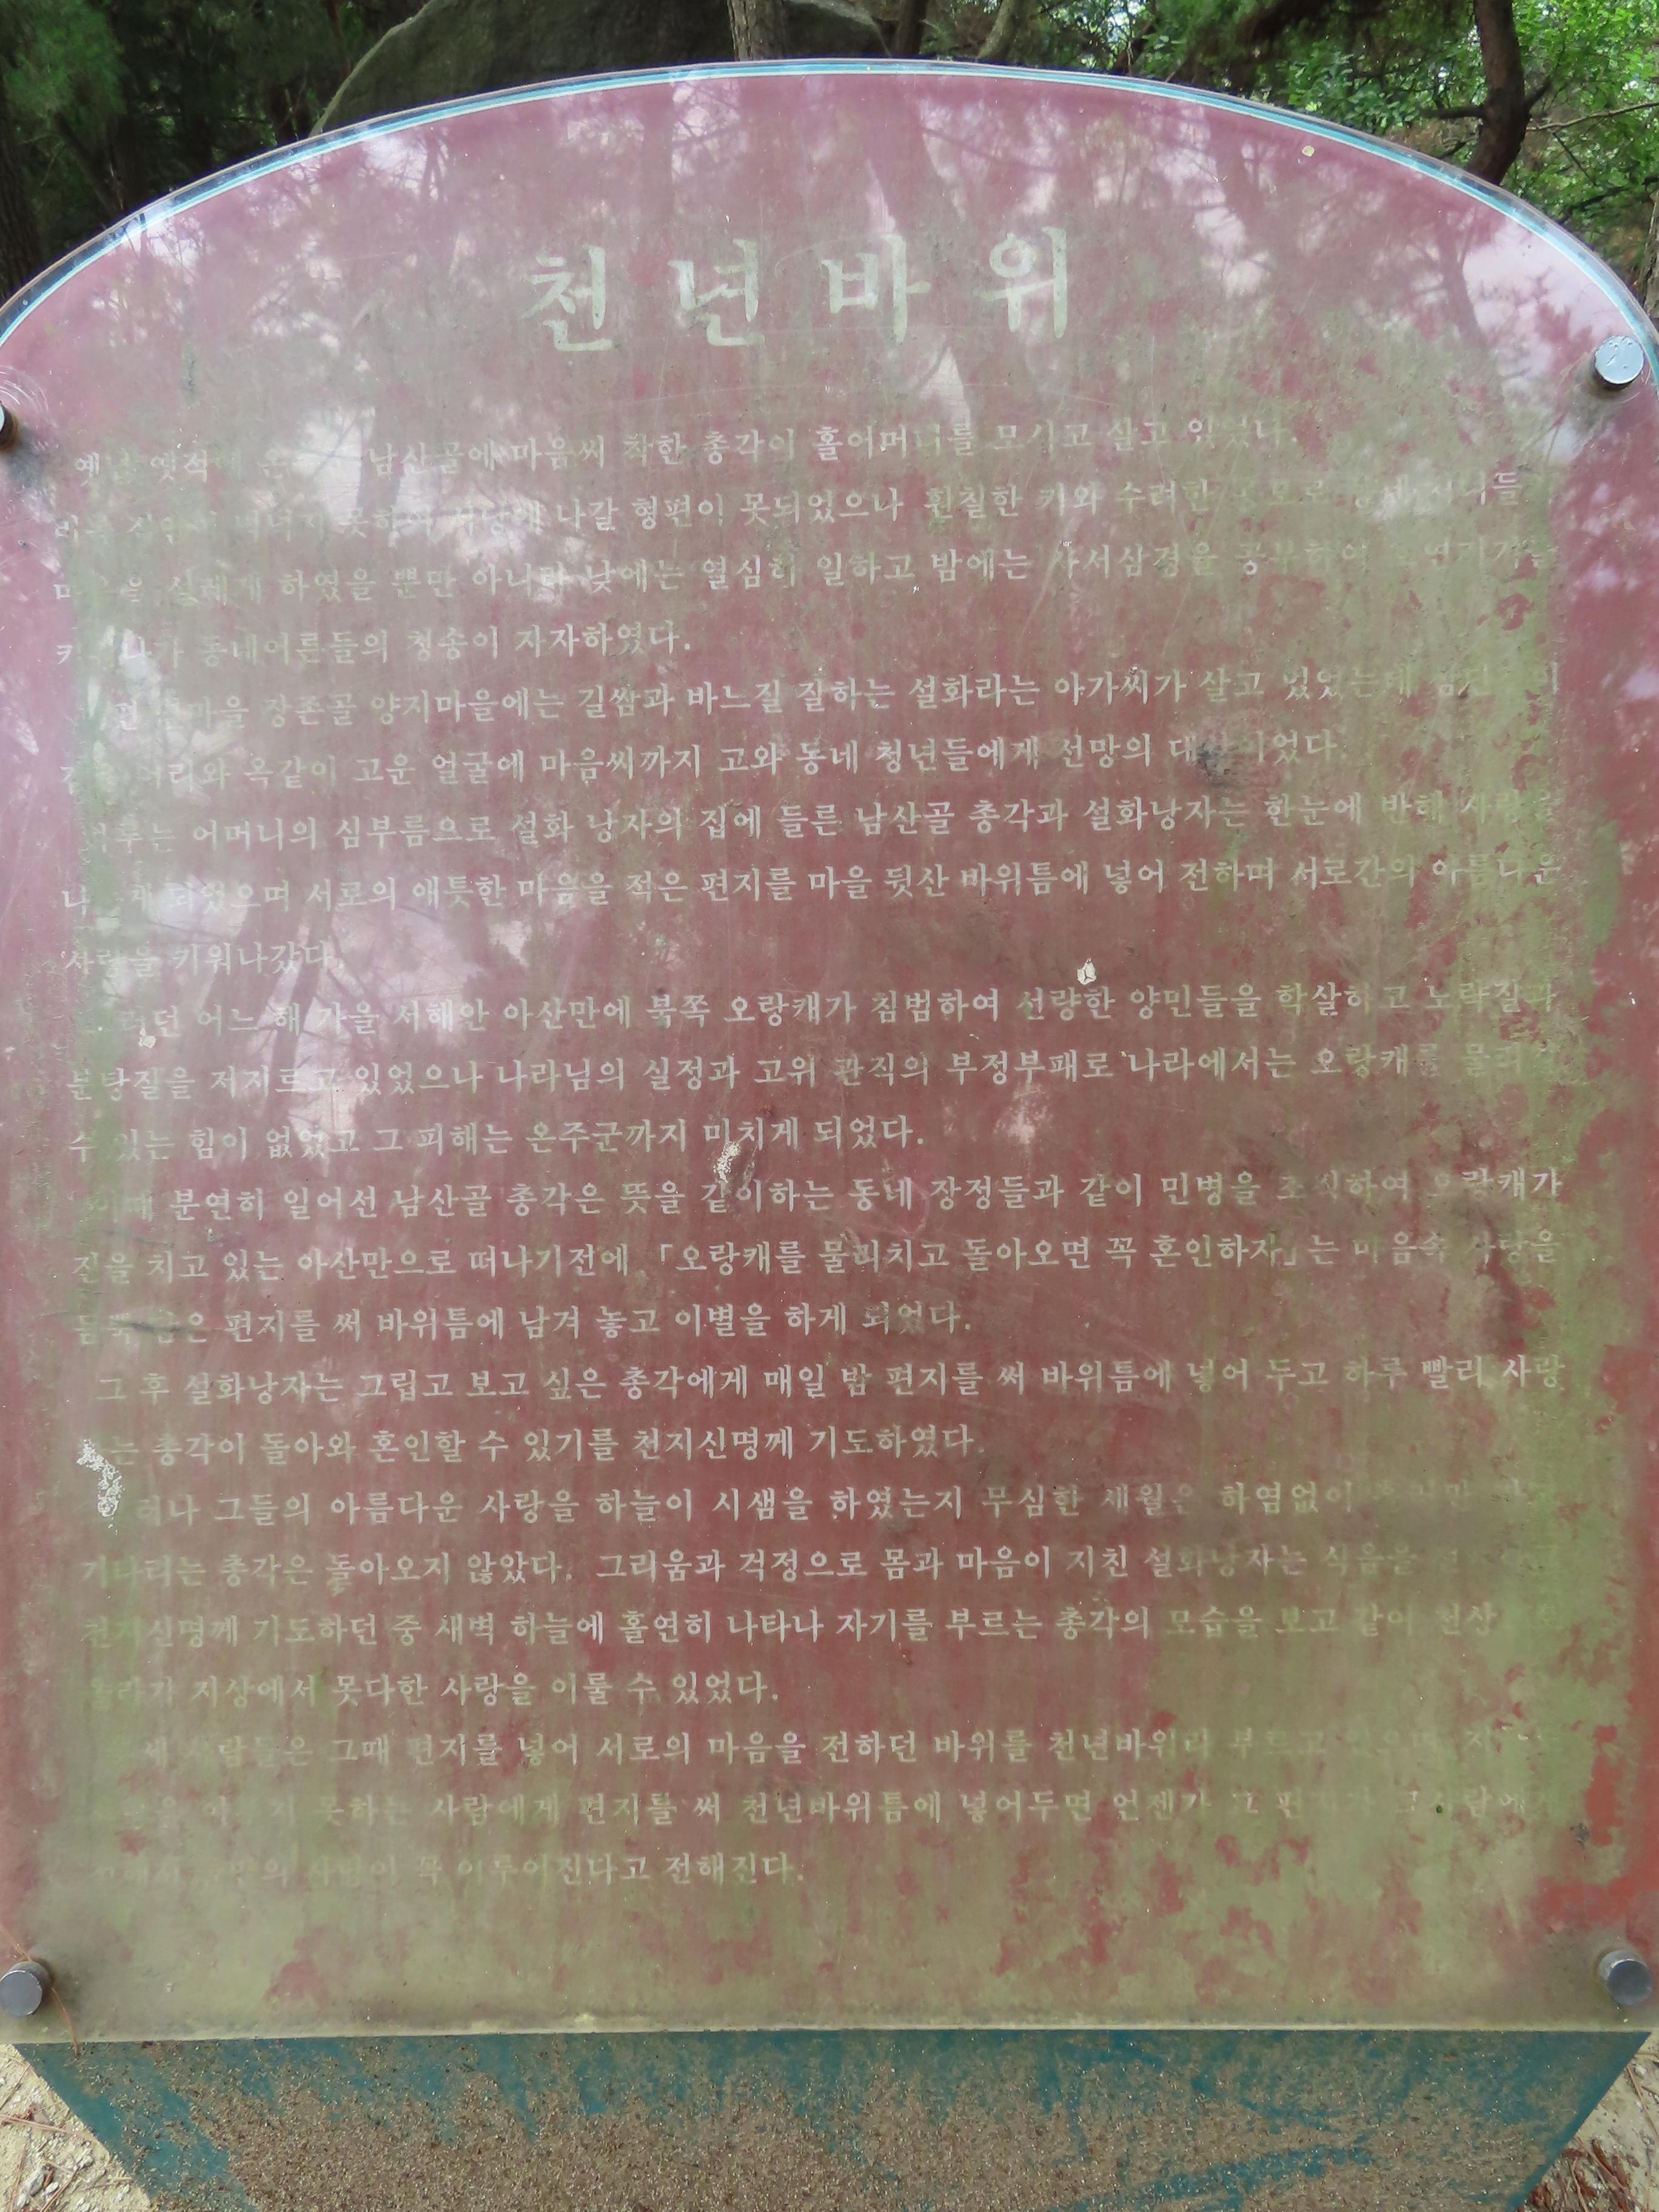 천년바위
옛날 옛적에 남산골에 마음씨 착한 총각이 홀어머니를 모시고 살고 있었다.
나갈 형편이 못되었으나 훤칠한 키와 수려한
하였을 뿐만 아니라 낮에는 열심히 일하고 밤에는 사서삼경을 공부하여
동네어른들의 칭송이 자자하였다.
장존골 양지마을에는 길쌈과 바느질 잘하는 설화라는 아가씨가 살고 있었는데
머리와 옥같이 고운 얼굴에 마음씨까지 고와 동네 청년들에게 선망의 대상이었다.
하루는 어머니의 심부름으로 설화 낭자의 집에 들른 남산골 총각과 설화낭자는 한눈에 반해 사랑을
되었으며 서로의 애틋한 마음을 적은 편지를 마을 뒷산 바위틈에 넣어 전하며 서로간의 아름다운
사랑을 키워나갔다.
그러던 어느 해 가을 서해안 아산만에 북쪽 오랑캐가 침범하여 선량한 양민들을 학살하고 노략질과
분탕질을 저지르고 있었으나 나라님의 실정과 고위 관직의 부정부패로 나라에서는 오랑캐를 물리칠
수 있는 힘이 없었고 그 피해는 온주군까지 미치게 되었다.
이때 분연히 일어선 남산골 총각은 뜻을 같이하는 동네 장정들과 같이 민병을 조직하여 오랑캐가
진을 치고 있는 아산만으로 떠나기전에 「오랑캐를 물리치고 돌아오면 꼭 혼인하자」는 마음속 사랑을
듬뿍 담은 편지를 써 바위틈에 남겨 놓고 이별을 하게 되었다.
그 후 설화낭자는 그립고 보고 싶은 총각에게 매일 밤 편지를 써 바위틈에 넣어 두고 하루 빨리 사랑
하는 총각이 돌아와 혼인할 수 있기를 천지신명께 기도하였다.
그러나 그들의 아름다운 사랑을 하늘이 시샘을 하였는지 무심한 세월은 하염없이
기다리는 총각은 돌아오지 않았다. 그리움과 걱정으로 몸과 마음이 지친 설화낭자는 식음을
천지신명께 기도하던 중 새벽 하늘에 홀연히 나타나 자기를 부르는 총각의 모습을 보고 같이 천상
올라가 지상에서 못다한 사랑을 이룰 수 있었다.
사람들은 그때 편지를 넣어 서로의 마음을 전하던 바위를 천년바위라 부르고 있으며,
못하는 사람에게 편지를 써 천년바위틈에 넣어두면 언젠가 그 그사람에게
사랑이 꼭 이루어진다고 전해진다.